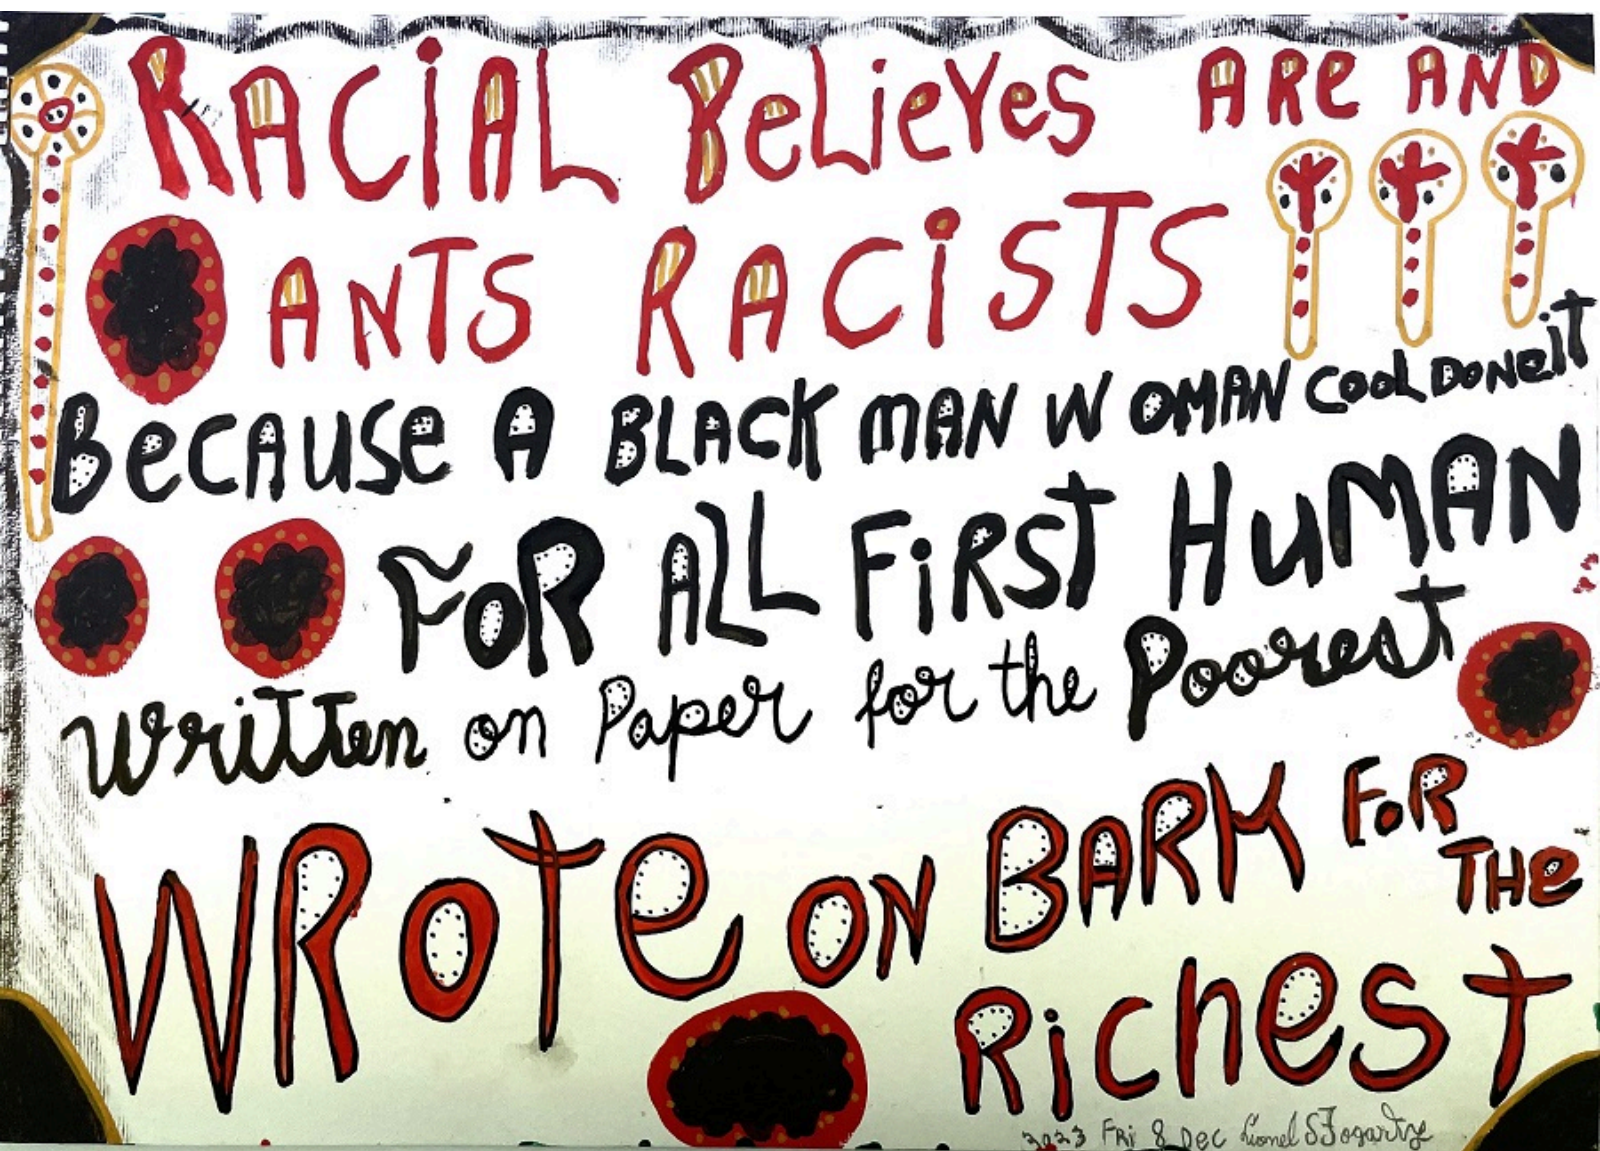 RACiAL BeLieVes ARe AND
ANTS RACiSTS
BeCAUSe A BLACK MAN WOMAN COOL DONe iT
FOR ALL FiRST HuMAN
Written on Paper for the Poorest
WRote ON BARK FoR
THe
RicheST
2023 FRi 8 Dec Lionel G Fogarty